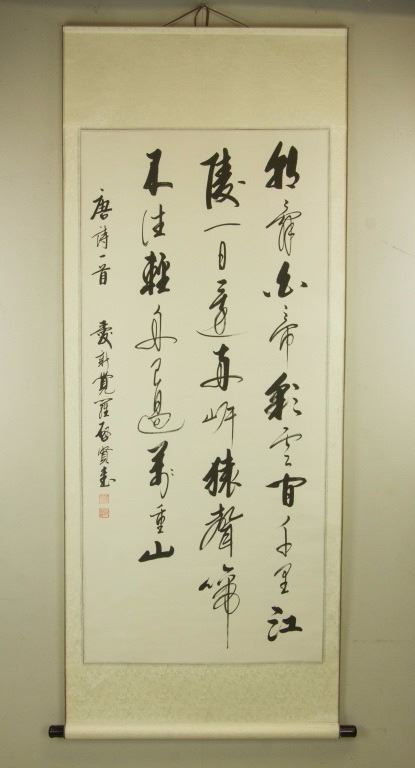 朝辭白帝彩雲間千里江
陵一日還兩岸猿聲啼
不住輕舟已過萬重山
唐詩一首 愛新覺羅啓賢書